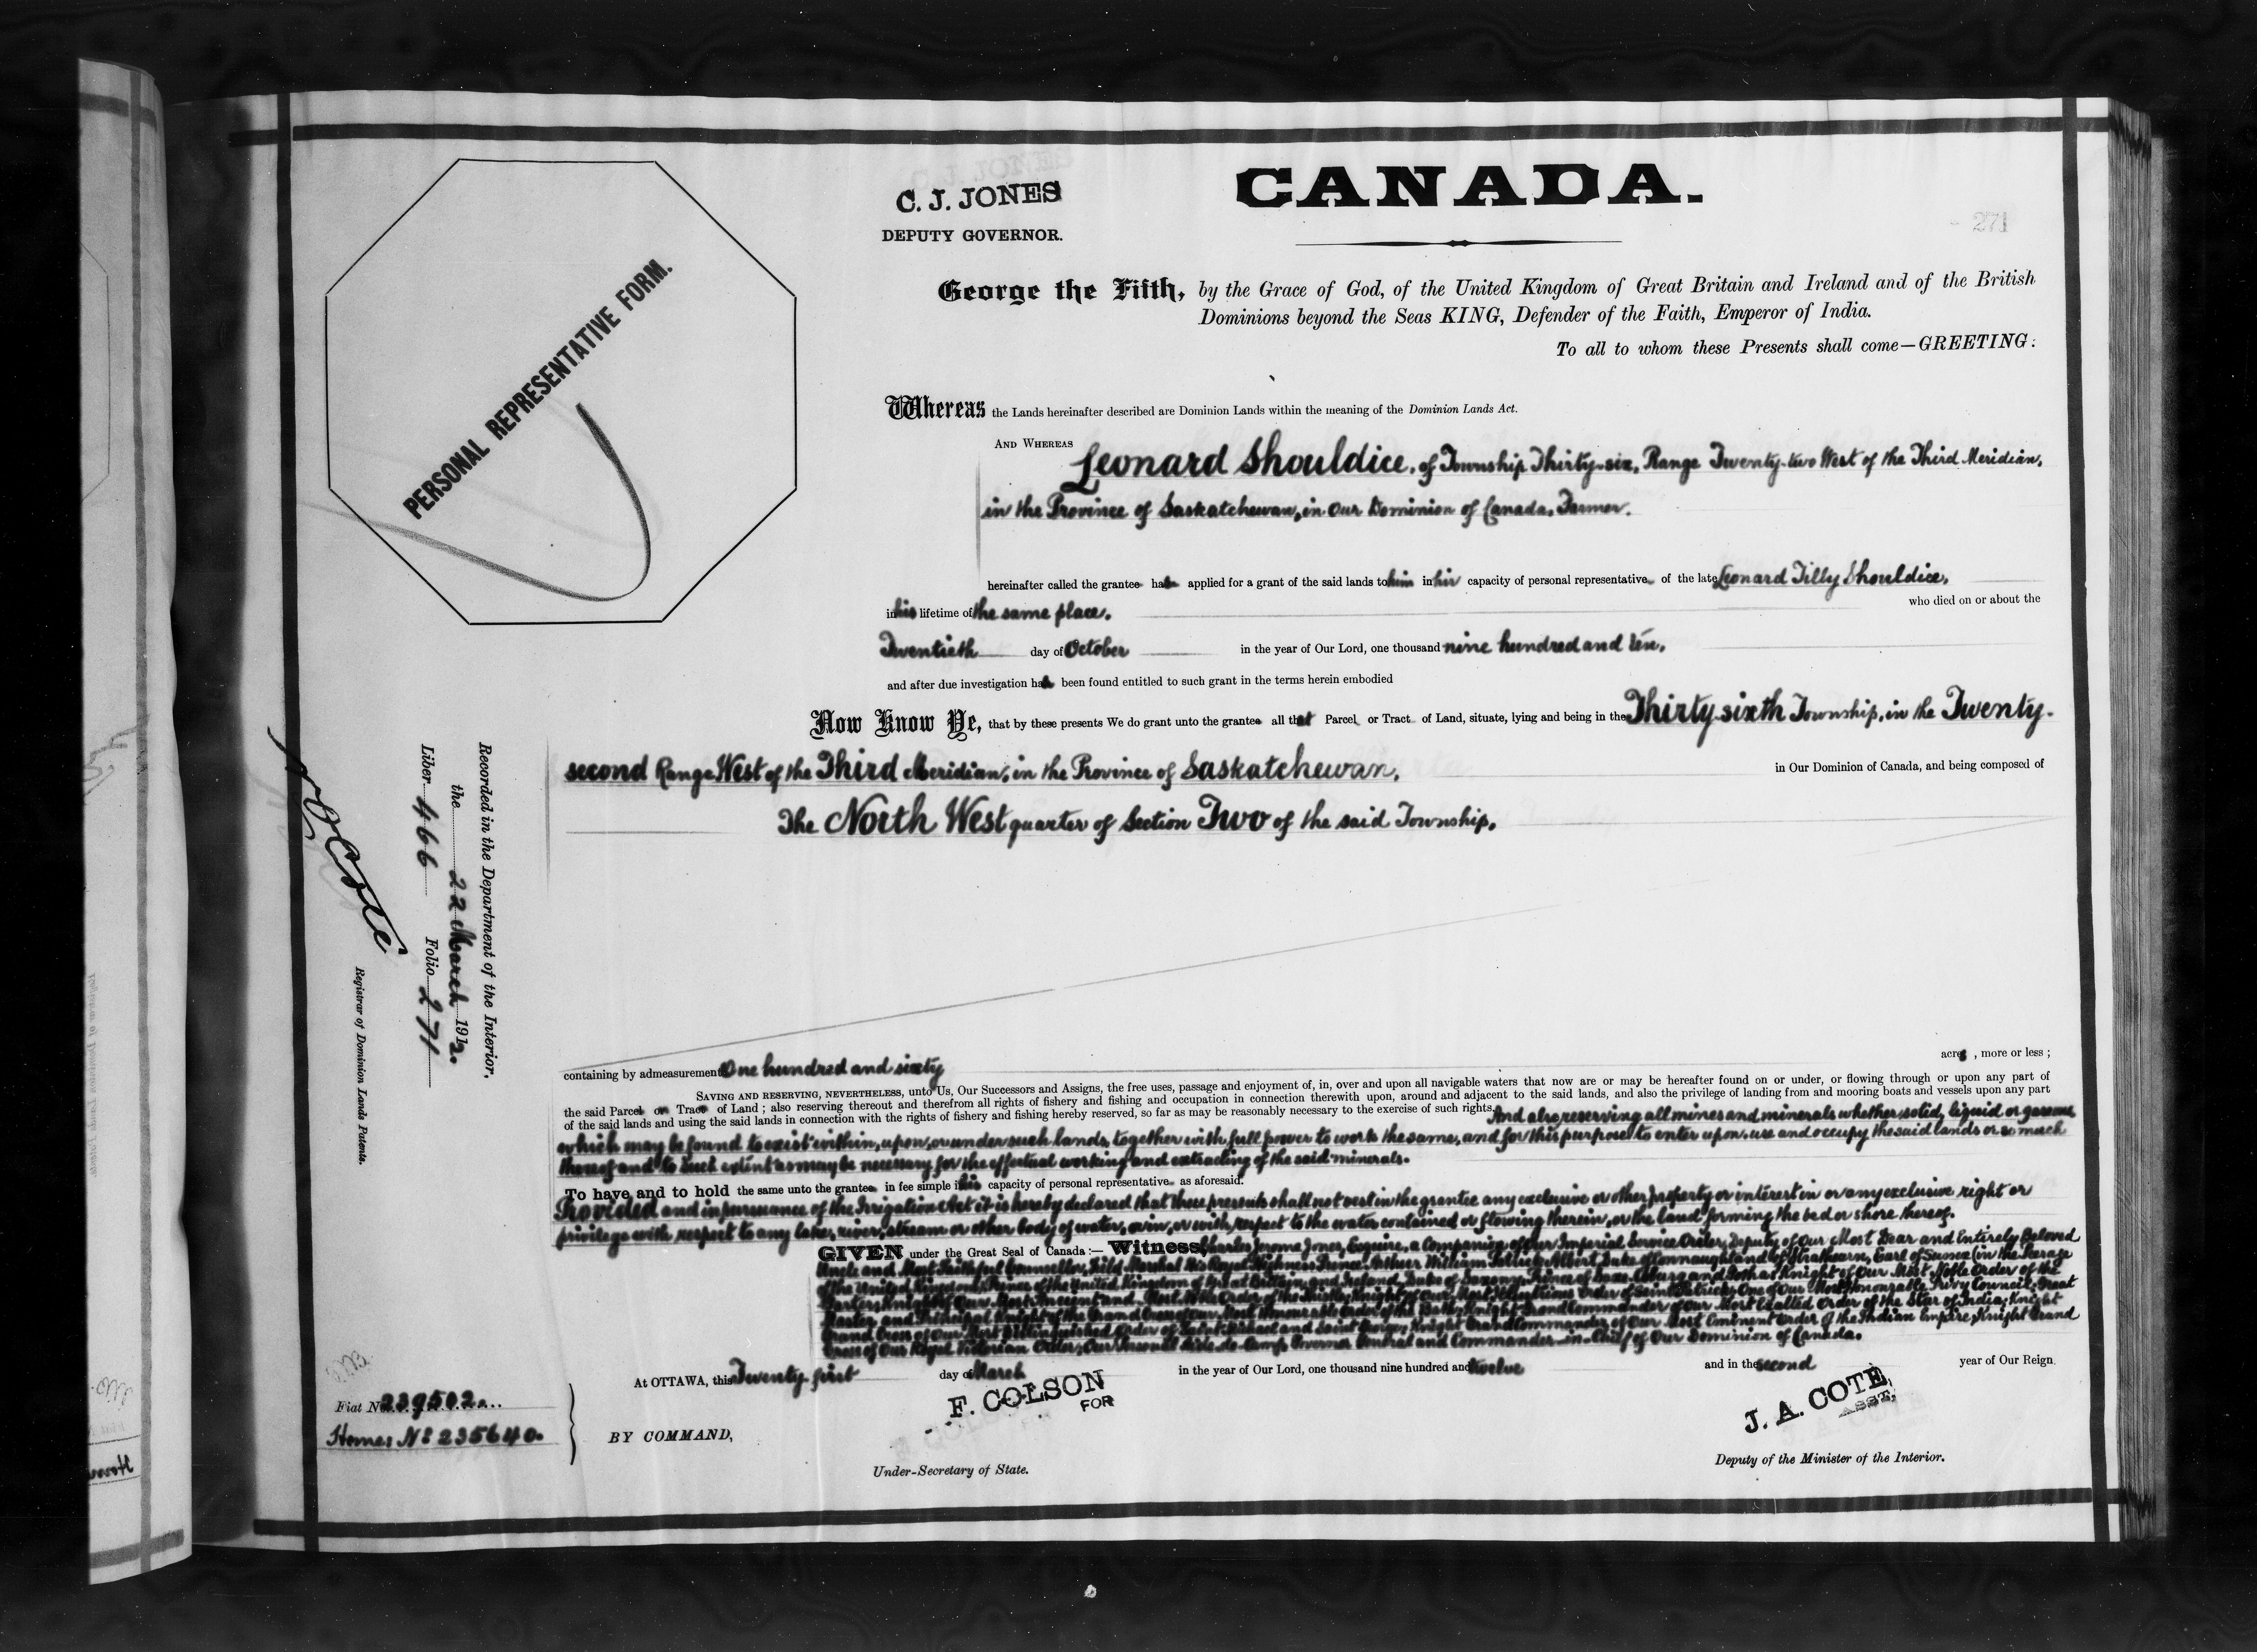 CANADA.
C. J. JONES
DEPUTY GOVERNOR.
271
PERSONAL REPRESENTATIVE FORM.
George the Fifth, by the Grace of God, of the United Kingdom of Great Britain and Ireland and of the British
Dominions beyond the Seas KING, Defender of the Faith, Emperor of India.
To all to whom these Presents shall come—GREETING:
Whereas the Lands hereinafter described are Dominion Lands within the meaning of the Dominion Lands Act.
AND WHEREAS Leonard Shouldice, of Township Thirty-six, Range Twenty-two West of the Third Meridian,
in the Province of Saskatchewan, in Our Dominion of Canada, Farmer.
hereinafter called the grantee has applied for a grant of the said lands to him in his capacity of personal representative of the late Leonard Tilly Shouldice,
in his lifetime of the same place, who died on or about the
Twentieth day of October in the year of Our Lord, one thousand nine hundred and ten,
and after due investigation has been found entitled to such grant in the terms herein embodied
Now Know Ye, that by these presents We do grant unto the grantee all that Parcel or Tract of Land, situate, lying and being in the Thirty-sixth Township, in the Twenty-
second Range West of the Third Meridian, in the Province of Saskatchewan, in Our Dominion of Canada, and being composed of
The North West quarter of Section Two of the said Township,
containing by admeasurement One hundred and sixty acres, more or less;
SAVING AND RESERVING, NEVERTHELESS, unto Us, Our Successors and Assigns, the free uses, passage and enjoyment of, in, over and upon all navigable waters that now are or may be hereafter found on or under, or flowing through or upon any part of
the said Parcel or Tract of Land; also reserving thereout and therefrom all rights of fishery and fishing and occupation in connection therewith upon, around and adjacent to the said lands, and also the privilege of landing from and mooring boats and vessels upon any part
of the said lands and using the said lands in connection with the rights of fishery and fishing hereby reserved, so far as may be reasonably necessary to the exercise of such rights. And also reserving all mines and minerals whether solid, liquid or gaseous
which may be found to exist within, upon, or under such lands, together with full power to work the same, and for this purpose to enter upon, use and occupy the said lands or so much
thereof and to such extent as may be necessary for the effectual working and extracting of the said minerals.
To have and to hold the same unto the grantee in fee simple in his capacity of personal representative as aforesaid.
Provided and in pursuance of the Irrigation Act it is hereby declared that these presents shall not vest in the grantee any exclusive or other property or interest in or any exclusive right or
privilege with respect to any lake, river, stream or other body of water, or in, or with respect to the water contained or flowing therein, or the land forming the bed or shore thereof.
GIVEN under the Great Seal of Canada:— Witness, Charles Jerome Jones, Esquire, a Companion of Our Imperial Service Order, Deputy of Our Most Dear and Entirely Beloved
Uncle and Most Faithful Counsellor, Field Marshal His Royal Highness Prince Arthur William Patrick Albert, Duke of Connaught and of Strathearn, Earl of Sussex (in the Peerage
of the United Kingdom), Prince of the United Kingdom of Great Britain and Ireland, Duke of Saxony, Prince of Saxe-Coburg and Gotha; Knight of Our Most Noble Order of the
Garter; Knight of Our Most Ancient and Most Noble Order of the Thistle; Knight of Our Most Illustrious Order of Saint Patrick; One of Our Most Honorable Privy Council; Great
Master and Principal Knight of the Grand Cross of Our Most Honourable Order of the Bath; Knight Grand Commander of Our Most Exalted Order of the Star of India; Knight
Grand Cross of Our Most Distinguished Order of Saint Michael and Saint George; Knight Grand Commander of Our Most Eminent Order of the Indian Empire; Knight Grand
Cross of Our Royal Victorian Order; Our Personal Aide-de-Camp, Governor General and Commander-in-Chief of Our Dominion of Canada.
At OTTAWA, this Twenty-first day of March in the year of Our Lord, one thousand nine hundred and twelve and in the second year of Our Reign.
BY COMMAND,
F. COLSON
FOR
Under-Secretary of State.
J. A. COTE,
ASST.
Deputy of the Minister of the Interior.
Fiat No 239502
Homes No 235640.
Recorded in the Department of the Interior,
the 22 March 1912.
Liber 466 Folio 271
Registrar of Dominion Lands Patents.